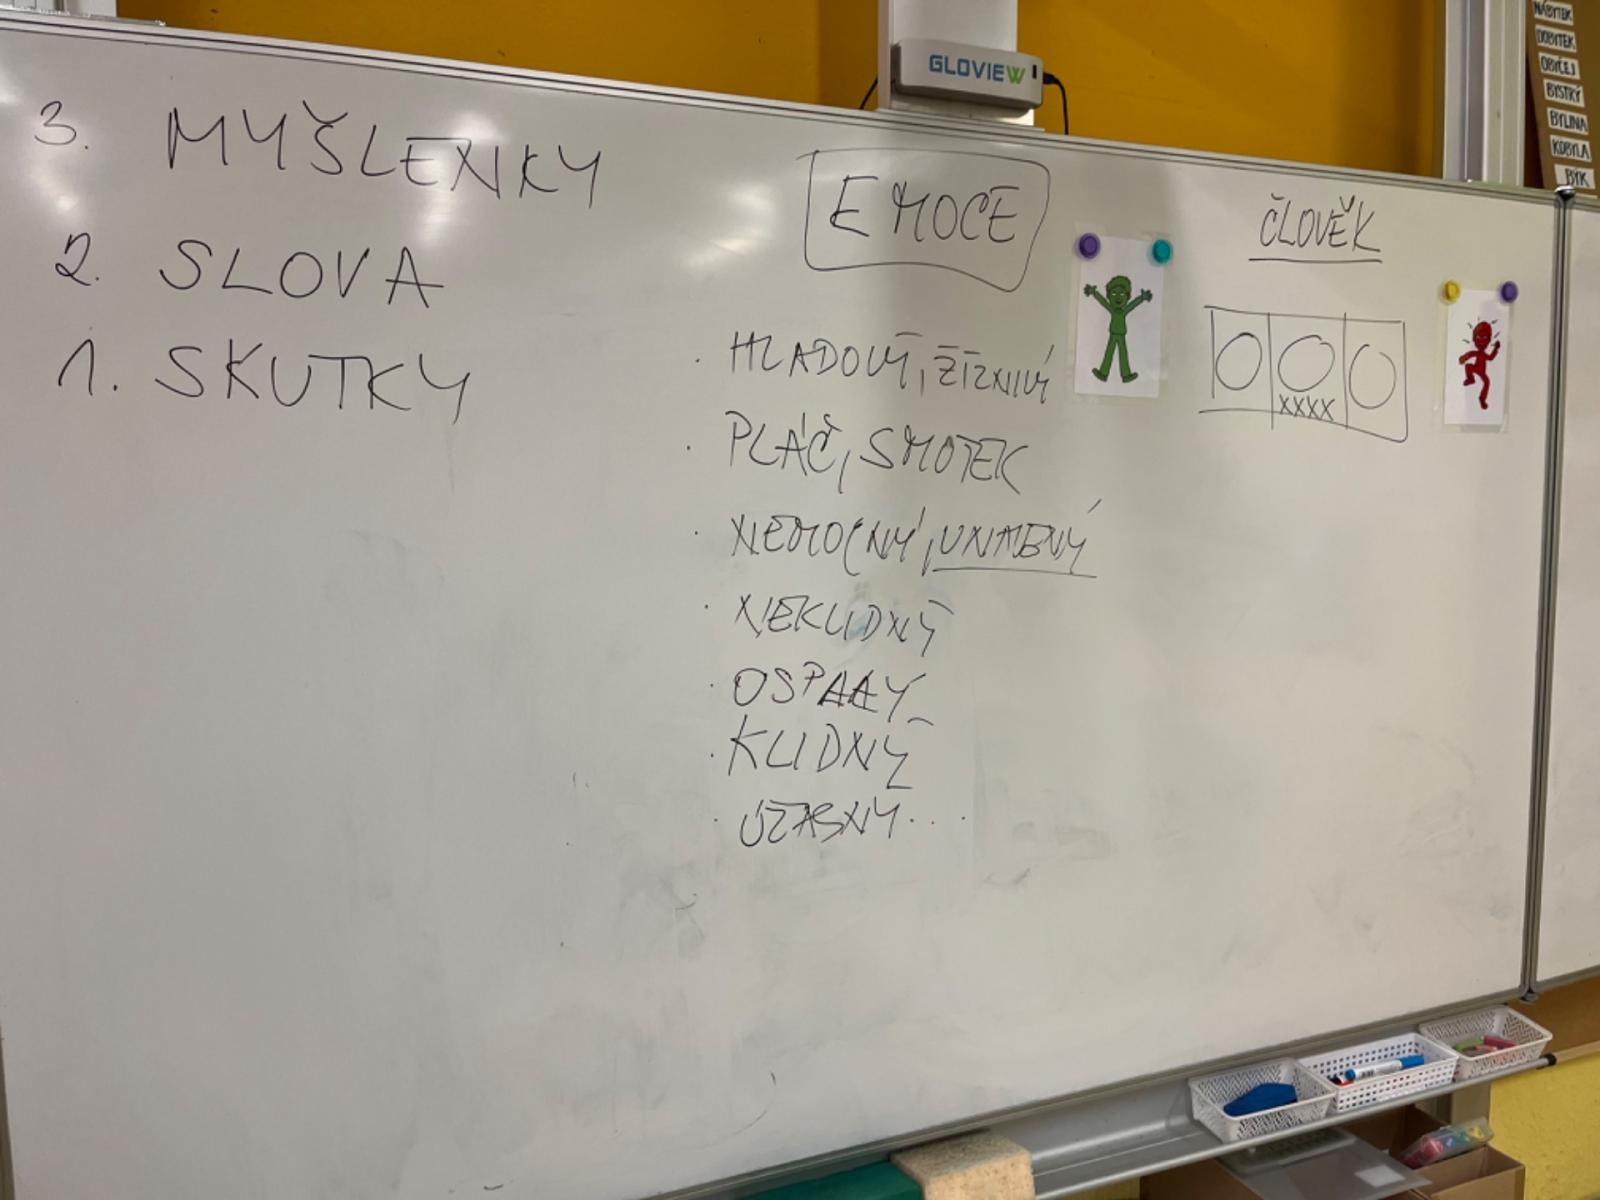 GLOVIEW
NÁBYTEK
DOBYTEK
OBYČEJ
BYSTRÝ
BYLINA
KOBYLA
BÝK
3. MYŠLENKY
2. SLOVA
1. SKUTKY
EMOCE
· HLADOVÝ, ŽÍZNIVÝ
· PLÁČ, SMUTEK
· NEMOCNÝ, UNAVENÝ
· NEKLIDNÝ
· OSPALÝ
· KLIDNÝ
· ÚŽASNÝ...
ČLOVĚK
XXXX